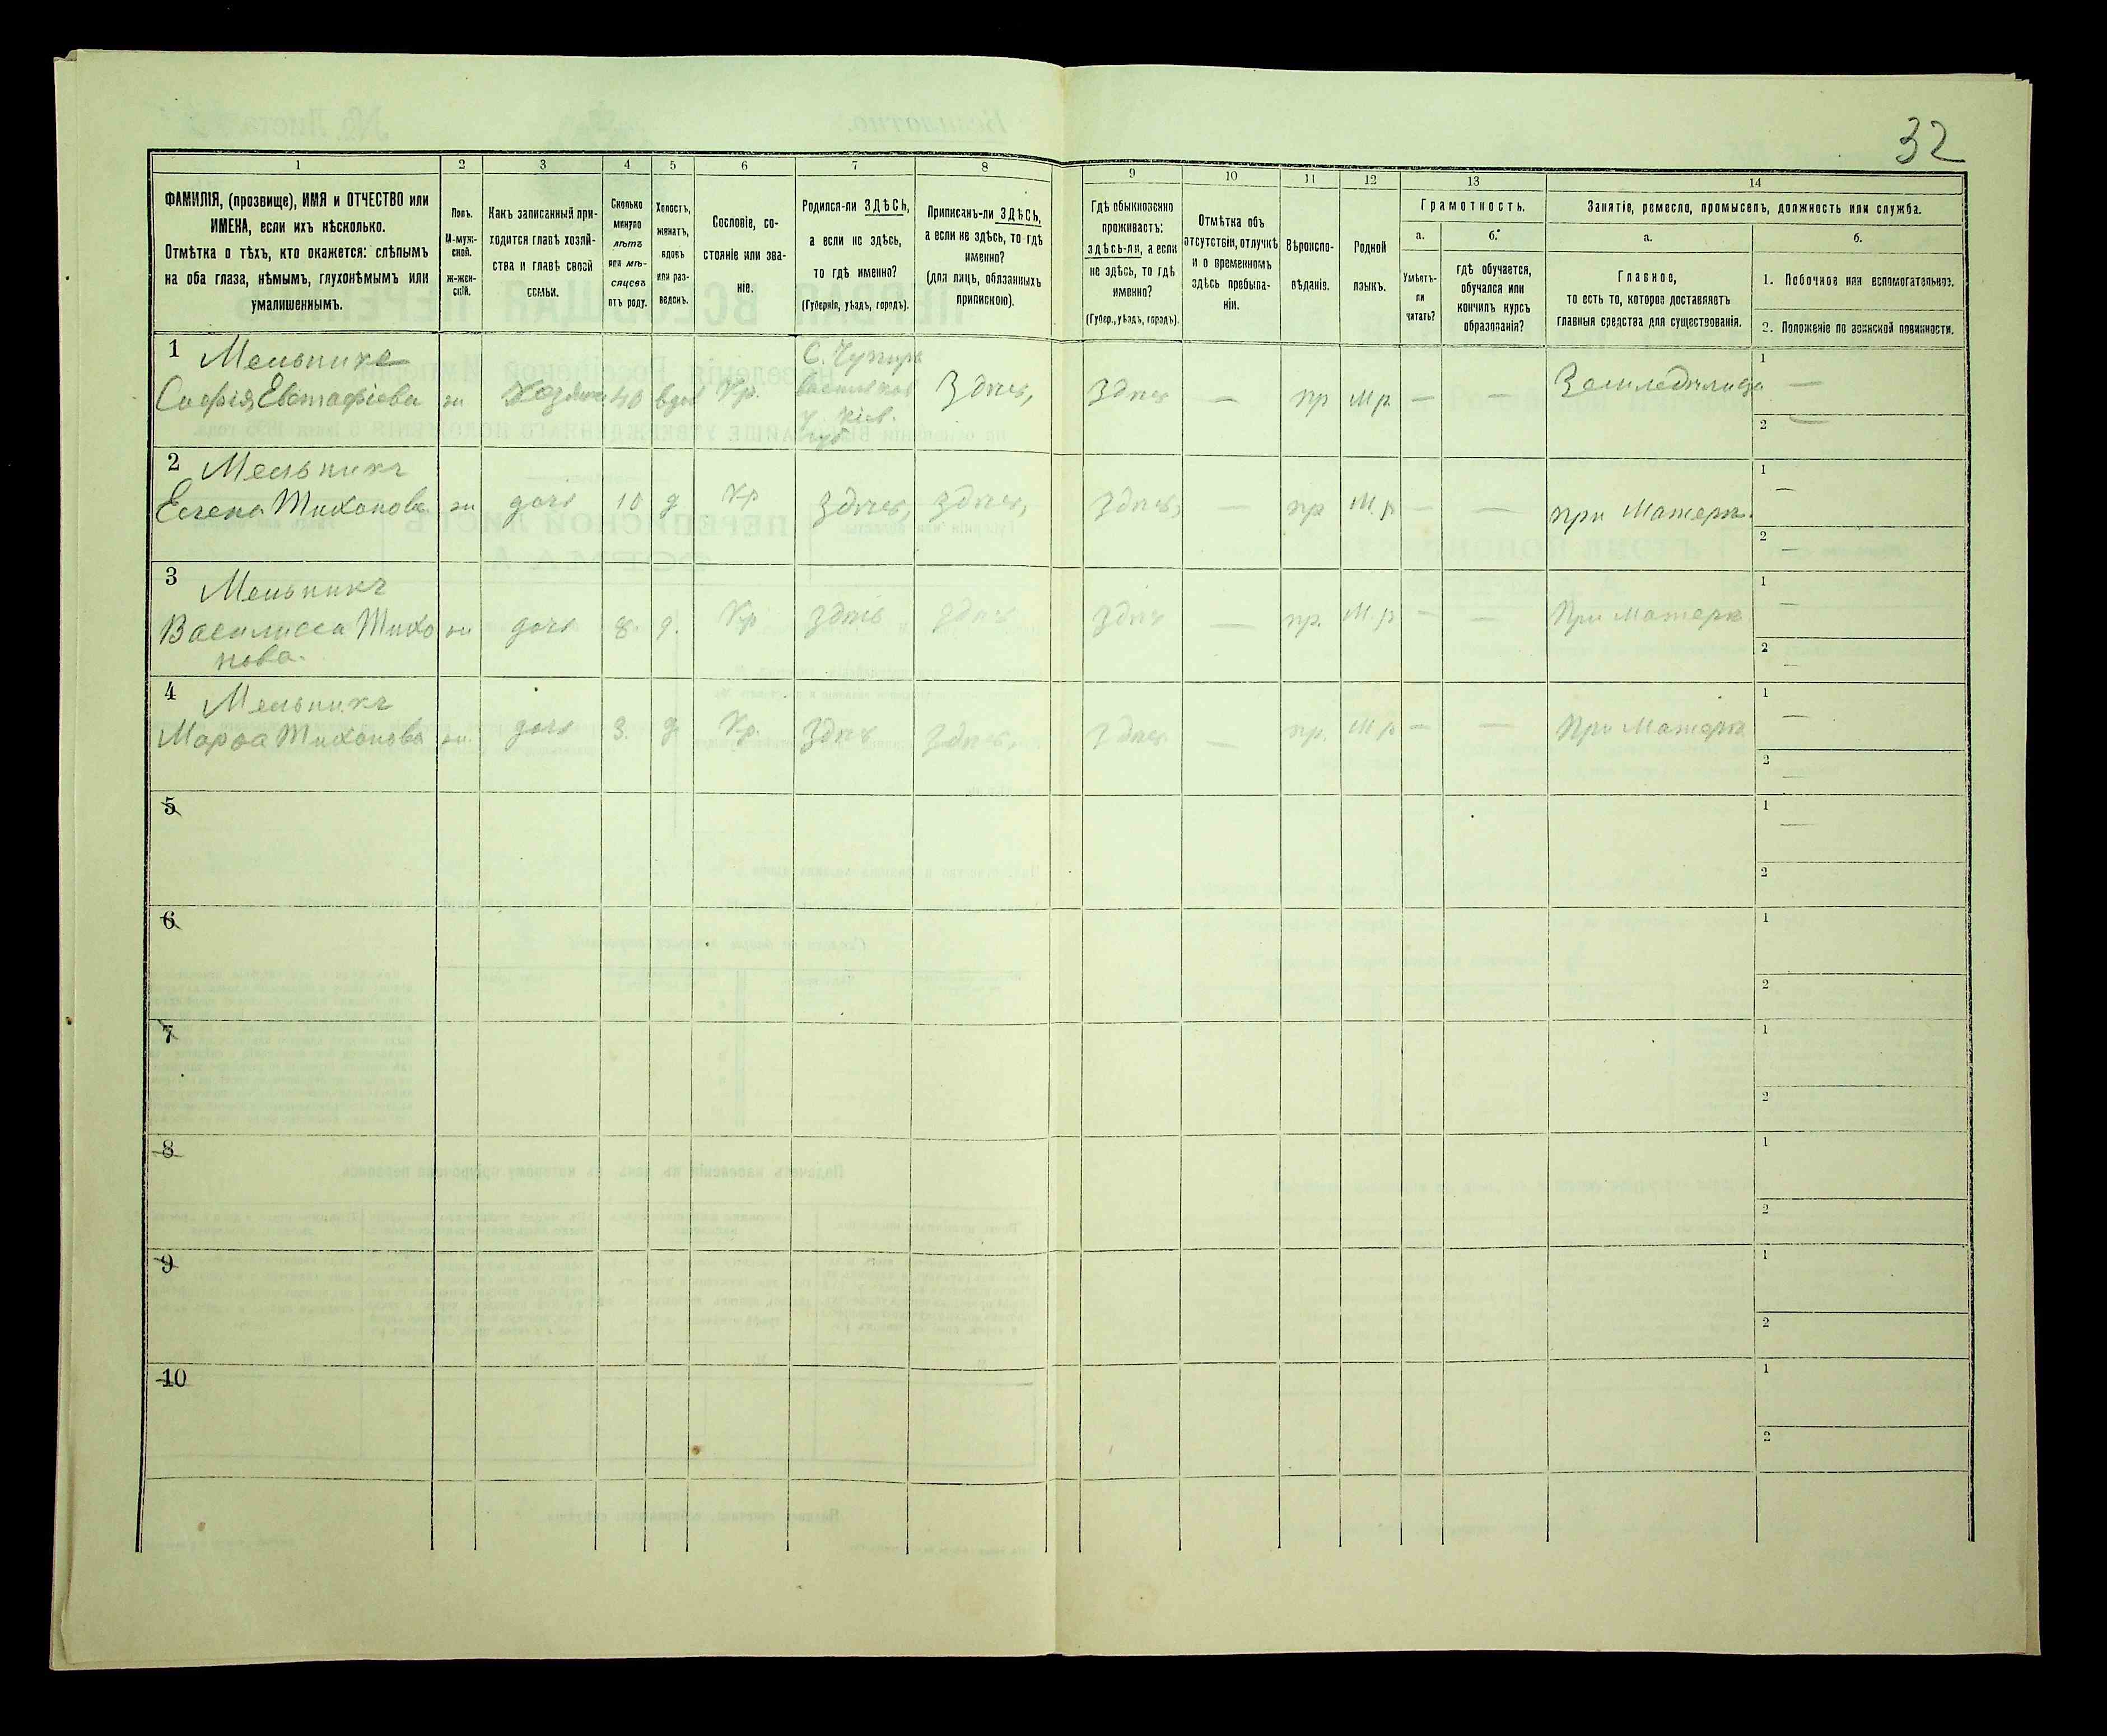 32
1
2
3
4
5
6
7
8
9
10
11
12
13
14
ФАМИЛІЯ, (прозвище), ИМЯ и ОТЧЕСТВО или
ИМЕНА, если ихъ нѣсколько.
Отмѣтка о тѣхъ, кто окажется: слѣпымъ
на оба глаза, нѣмымъ, глухонѣмымъ или
умалишеннымъ.
Полъ.
М-муж-
ской.
Ж-жен-
скій.
Какъ записанный при-
ходится главѣ хозяй-
ства и главѣ своей
семьи.
Сколько
минуло
лѣтъ
или мѣ-
сяцевъ
отъ роду.
Холостъ,
женатъ,
вдовъ
или раз-
веденъ.
Сословіе, со-
стояніе или зва-
ніе.
Родился-ли ЗДѢСЬ,
а если не здѣсь,
то гдѣ именно?
(Губернія, уѣздъ, городъ).
Приписанъ-ли ЗДѢСЬ,
а если не здѣсь, то гдѣ
именно?
(для лицъ, обязанныхъ
припискою).
Гдѣ обыкновенно
проживаетъ:
здѣсь-ли, а если
не здѣсь, то гдѣ
именно?
(Губер., уѣздъ, городъ).
Отмѣтка объ
отсутствіи, отлучкѣ
и о временномъ
здѣсь пребыва-
ніи.
Вѣроиспо-
вѣданіе.
Родной
языкъ.
Грамотность.
а.
Умѣетъ-
ли
читать?
б.
гдѣ обучается,
обучался или
кончилъ курсъ
образованія?
Занятіе, ремесло, промыселъ, должность или служба.
а.
Главное,
то есть то, которое доставляетъ
главныя средства для существованія.
б.
1. Побочное или вспомогательное.
2. Положеніе по воинской повинности.
1 Мельникъ
Софія Евстафіева ж Хозяйка 40 вдов Кр. Здѣсь, Здѣсь — пр М.р. — — Земледѣлица 1 —
у. Кіев.
губ
2 —
2 Мельникъ
Елена Тихонова ж дочь 10 д Кр здѣсь, здѣсь, здѣсь, — пр М.р — — при Матери. 1 —
2 —
3 Мельникъ
Василисса Тихо ж дочь 8. д. Кр здѣсь здѣсь здѣсь — пр. М.р — — При Матери 1 —
нова.
2 —
4 Мельникъ
Марѳа Тихонова ж. дочь 3. д Кр. Здѣсь Здѣсь, Здѣсь — пр. М.р — — При Матери 1 —
2 —
5
1 —
2
6
1
2
7
1
2
8
1
2
9
1
2
10
1
2